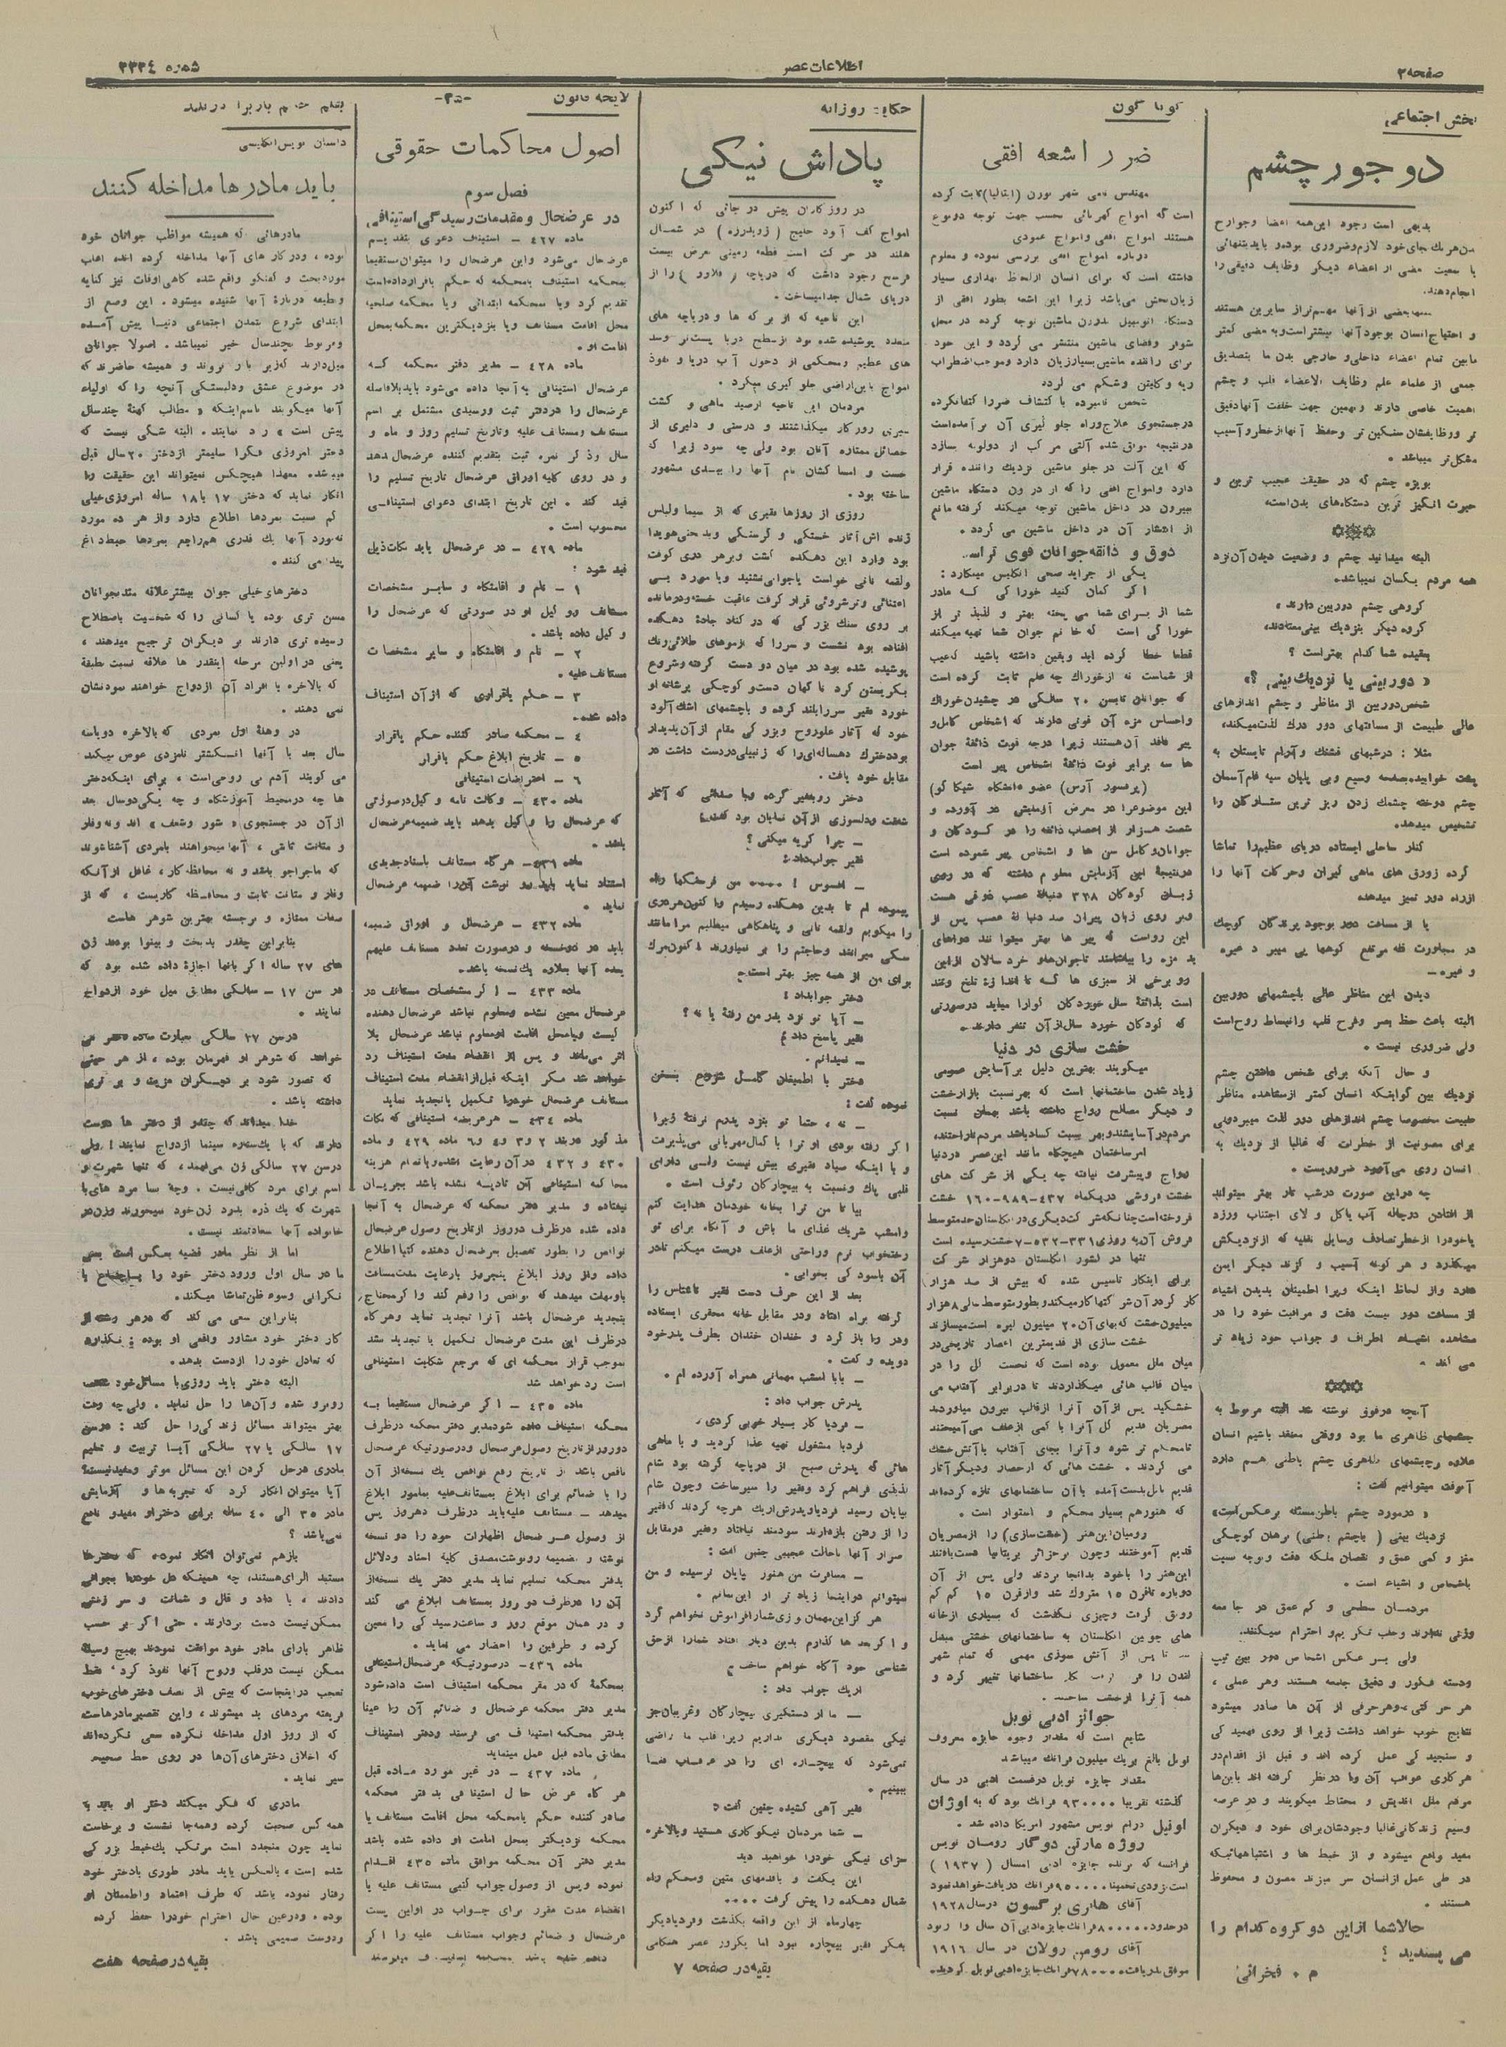 صفحه ۲
اطلاعات عصر
شماره ۳۳۳٤
بخش اجتماعی
دو جور چشم
بدیهی است وجود این‌همه اعضا وجوارح
انجام دهند.
و احتیاج انسان بوجود آنها بیشتر است و بعضی کمتر
ما بین تمام اعضاء داخلی و خارجی بدن ما بتصدیق
جمعی از علماء علم وظایف الاعضاء قلب و چشم
اهمیت خاصی دارند و بهمین جهت خلقت آنها دقیق
تر و وظایفشان سنگین تر و حفظ آنها از خطر و آسیب
مشکل‌تر میباشد .
بویژه چشم که در حقیقت عجیب ترین و
حیرت انگیز ترین دستگاه‌های بدن است.
البته میدانید چشم و وضعیت دیدن آن نزد
همه مردم یکسان نمیباشد.
گروهی چشم دوربین دارند ،
گروه دیگر بنزدیک بینی معتادند،
بعقیده شما کدام بهتر است ؟
« دوربینی یا نزدیک بینی ؟»
شخص دوربین از مناظر و چشم اندازهای
عالی طبیعت از مسافتهای دور درک لذت میکند،
مثلا : درشبهای قشنگ و آرام تابستان به
پشت خوابیده بصفحه وسیع وبی پایان سیه فام آسمان
چشم دوخته چشمک زدن ریز ترین ستارگان را
تشخیص میدهد.
کنار ساحلی ایستاده دریای عظیم را تماشا
کرده زورق های ماهی گیران وحرکات آنها را
ازراه دور تمیز میدهد
یا از مسافت دور بوجود پرندگان کوچک
در مجاورت قله مرتفع کوهها پی میبر د غیره
و غیره ـ
دیدن این مناظر عالی باچشمهای دوربین
البته باعث حظ بصر وفرح قلب وانبساط روح است
ولی ضروری نیست .
و حال آنکه برای شخص داشتن چشم
نزدیک بین گو اینکه انسان کمتر ازمشاهده مناظر
طبیعت مخصوصا چشم اندازهای دور لذت میبرد ولی
برای مصونیت از خطرات که غالبا از نزدیک به
انسان روی می‌آورد ضروریست .
چه دراین صورت درشب تار بهتر میتواند
از افتادن درچاله آب یا گل و لای اجتناب ورزد
آنچه درفوق نوشته شد البته مربوط به
چشمهای ظاهری ما بود ووقتی معتقد باشیم انسان
علاوه برچشمهای ظاهری چشم باطنی هم دارد
آنوقت میتوانیم گفت:
« درمورد چشم باطن مسئله برعکس است»
مغز و کمی عمق و نقصان ملکه دقت وتوجه نسبت
باشخاص و اشیاء است .
مردمان سطحی و کم عمق در جامعه
ولی بر عکس اشخاص دور بین تیپ
ودسته فکور و دقیق جامعه هستند وهر عملی ،
هر حرکتی، وهرحرفی از آن ها صادر میشود
نتایج خوب خواهد داشت زیرا از روی فهمید گی
و سنجید گی عمل کرده اند و قبل از اقدام در
هرکاری عواقب آن را در نظر گرفته اند باین‌ها
مردم مآل اندیش و محتاط میگویند و در عرصه
وسیع زندگانی غالبا وجودشان برای خود و دیگران
مفید واقع میشود و از خبط ها و اشتباهاتیکه
در طی عمل از انسان سر میزند مصون و محفوظ
هستند .
حالا شما از این دو گروه کدام را
می پسندید ؟
م . فخرائی
گوناگون
ضرر اشعه افقی
است که امواج کهربائی بحسب جهت توجه دو نوع
هستند امواج افقی وامواج عمودی
درباره امواج افقی بررسی نموده و معلوم
داشته است که برای انسان ازلحاظ بهداری بسیار
زیان‌بخش می‌باشد زیرا این اشعه بطور افقی از
برای راننده ماشین بسیار زیان دارد وموجب اضطراب
از انتشار آن در داخل ماشین می گردد .
ذوق و ذائقه جوانان قوی تر است
یکی از جراید صحی انگلیس مینگارد :
اگر گمان کنید خوراکی که مادر
شما از برای شما می پخته بهتر و لذیذ تر از
خوراکی است که خانم جوان شما تهیه میکند
قطعا خطا کرده اید ویقین داشته باشید که عیب
از شماست نه ازخوراک چه علم ثابت کرده است
که جوانان تا سن ۲۰ سالگی در چشیدن خوراک
واحساس مزه آن قوتی دارند که اشخاص کامل و
پیر فاقد آن هستند زیرا درجه قوت ذائقهٔ جوان
ها سه برابر قوت ذائقهٔ اشخاص پیر است
(پرفسور آرس) عضو دانشگاه شیکا گو)
این موضوع را در معرض آزمایش در آورده و
شصت هزار از اعصاب ذائقه را در کودکان و
جوانان وکامل سن ها و اشخاص پیر شمرده است
خشت سازی در دنیا
میگویند بهترین دلیل بر آسایش عمومی
زیاد شدن ساختمانها است که بهر نسبت بازار خشت
و دیگر مصالح رواج داشته باشد بهمان نسبت
مردم درآسایشند وبهر نسبت کساد باشد مردم ناراحتند،
امر ساختمان هیچگاه مانند این‌عصر در دنیا
رواج وپیشرفت نیافته چه یکی از شرکت های
خشت فروشی دریکماه ٤۳۷-۹۸۹-۱۶۰ خشت
فروش آن به روزی ۳۳۱-۵۳۲-۷ خشت رسیده است
تنها در کشور انگلستان دوهزار شرکت
برای اینکار تاسیس شده که بیش از صد هزار
میلیون خشت که بهای آن ۲۰ میلیون لیره است میسازند
خشت سازی از قدیمترین اعصار تاریخی در
میان ملل معمول بوده است که نخست گل را در
میان قالب هائی میگذاردند تا دربرابر آفتاب می
خشکید پس ازآن آنرا ازقالب بیرون میاوردند
مصریان قدیم گل آنرا با کمی ازعلف می‌آمیختند
تا محکم تر شود و آنرا بجای آفتاب با آتش خشک
می کردند . خشت هائی که ازحصار ودیگر آثار
قدیم بابل بدست آمده با آن ساختمانهای تازه کرده‌اند
که هنوز هم بسیار محکم و استوار است .
رومیان این هنر (خشت‌سازی) را از مصریان
این‌هنر را باخود بدانجا بردند ولی پس از آن
دوباره تا قرن ۱۵ متروک شد و از قرن ۱۵ کم کم
رونق گرفت وچیزی نگذشت که بسیاری ازخانه
های چوبین انگلستان به ساختمانهای خشتی مبدل
همه آنرا ازخشت ساختند .
جوائز ادبی نوبل
شایع است که مقدار وجوه جایزه معروف
نوبل بالغ بریک میلیون فرانک میباشد
مقدار جایزه نوبل درقسمت ادبی در سال
گذشته تقریبا ۹۳۰۰۰۰ فرانک بود که به اوژان
اونیل درام نویس مشهور امریکا داده شد .
روژه مارتن دوگار رومان نویس
فرانسه که برنده جایزه ادبی امسال ( ۱۹۳۷ )
است بزودی تخمینا ۹۵۰۰۰۰ فرانک دریافت خواهد نمود
آقای هانری برگسون درسال ۱۹۲۸
درحدود ۸۰۰۰۰۰ فرانک جایزه ادبی آن سال را ربود
آقای رومن رولان در سال ۱۹۱۶
حکایت روزانه
پاداش نیکی
در روزگاران پیش در جائی که اکنون
امواج کف آلود خلیج (زویدرزه) در شمال
هلند در حرکت است قطعه زمینی بعرض بیست
فرسخ وجود داشت که دریاچه (فلاوو) را از
دریای شمال جدا میساخت .
این ناحیه که از برکه ها و دریاچه های
متعدد پوشیده شده بود از سطح دریا پست‌تر وسد
های عظیم ومحکمی از دخول آب دریا و نفوذ
امواج باین اراضی جلو گیری میکرد .
ساخته بود .
روزی از روزها فقیری که از سیما ولباس
ژنده اش آثار خستگی و گرسنگی وبدبختی هویدا
بود وارد این دهکده گشت وبرهر دری کوفت
ولقمه نانی خواست یا جوابی نشنید ویا مورد بی
اعتنائی وترشروئی قرار گرفت عاقبت خسته ودرمانده
بر روی سنک بزرگی که در کنار جادهٔ دهکده
افتاده بود نشست و سر را که از موهای طلائی رنگ
پوشیده شده بود در میان دو دست گرفته وشروع
بگریستن کرد ناگهان دست کوچکی برشانه او
خورد فقیر سررا بلند کرده و باچشمهای اشک آلود
بود دخترک دهساله‌ای را که زنبیلی در دست داشت در
مقابل خود یافت .
ـ چرا گریه میکنی ؟
فقیر جواب داد:
ـ افسوس ! .... من فرسنگها راه
پیموده ام تا بدین دهکده رسیدم وتا کنون هر دری
را میکوبم ولقمه نانی و پناهگاهی میطلبم مرا مانند
سگی میرانند وحاجتم را بر نمیآورند ، اکنون مرک
برای من از همه چیز بهتر است.
دختر جوابداد :
ـ آیا تو نزد پدر من رفتهٔ یا نه ؟
فقیر پاسخ داد :
ـ نمیدانم .
دختر با اطمینان کامل شروع بسخن
نموده گفت :
ـ نه ، حتما تو نزد پدرم نرفتهٔ زیرا
اگر رفته بودی او ترا با کمال مهربانی می‌پذیرفت
و با اینکه صیاد فقیری بیش نیست ولی دارای
قلبی پاک ونسبت به بیچارگان رئوف است .
بیا تا من ترا بخانه خودمان هدایت کنم
وامشب شریک غذای ما باش و آنگاه برای تو
رختخواب نرم وراحتی ازعلف درست میکنم تا در
بعد از این حرف دست فقیر ناشناس را
گرفته براه افتاد ودر مقابل خانه محقری ایستاده
ودر را باز کرد و خندان خندان بطرف پدرخود
دویده و گفت .
ـ بابا امشب مهمانی همراه آورده ام .
پدرش جواب داد :
ـ فردیا کار بسیار خوبی کردی ،
فردیا مشغول تهیه غذا گردید و با ماهی
هائی که پدرش صبح از دریاچه گرفته بود شام
لذیذی فراهم کرد وفقیر را سیر ساخت وچون شام
بپایان رسید فردیا وپدرش اریک هرچه کردند که فقیر
را از رفتن بازدارند سودمند نیافتاد وفقیر درمقابل
ـ مسافرت من هنوز پایان نرسیده و من
نمیتوانم دراینجا زیاد تر از این بمانم .
هرگز این مهمان نوازی شمارا فراموش نخواهم کرد
شناسی خود آگاه خواهم ساخت .
اریک جواب داد :
ـ ما از دستگیری بیچارگان وغریبان جز
نیکی مقصود دیگری نداریم زیرا قلب ما راضی
ببینیم .
فقیر آهی کشیده چنین گفت :
ـ شما مردمان نیکوکاری هستید وبالاخره
سزای نیکی خودرا خواهید دید
این بگفت و باقدمهای متین ومحکم راه
شمال دهکده را پیش گرفت ....
چهارماه از این واقعه بگذشت وفردیا دیگر
بفکر فقیر بیچاره نبود اما یکروز عصر هنگامی
بقیه در صفحه ۷
لایحه قانون
-۳۵-
اصول محاکمات حقوقی
فصل سوم
در عرضحال و مقدمات رسیدگی استینافی
ماده ٤۲۷ – استیناف دعوی بتقدیم
عرضحال می‌شود واین عرضحال را میتوان مستقیما
بمحکمه استیناف یا بمحکمه که حکم یا قرار داده‌است
تقدیم کرد ویا بمحکمه ابتدائی ویا محکمه صلحیه
محل اقامت مستانف ویا بنزدیکترین محکمه بمحل
اقامت او .
ماده ٤۲۸ – مدیر دفتر محکمه که
عرضحال استینافی به‌آنجا داده می‌شود باید بلافاصله
عرضحال را در دفتر ثبت ورسیدی مشتمل بر اسم
مستانف و مستانف علیه وتاریخ تسلیم روز و ماه و
سال وذکر نمره ثبت بتقدیم کننده عرضحال بدهد
و در روی کلیه اوراق عرضحال تاریخ تسلیم را
قید کند . این تاریخ ابتدای دعوای استینافی
محسوب است .
ماده ٤۲۹ – در عرضحال باید نکات ذیل
قید شود :
۱ – نام و اقامتگاه و سایر مشخصات
مستانف و وکیل او در صورتی که عرضحال را
وکیل داده باشد .
۲ – نام و اقامتگاه و سایر مشخصات
مستانف علیه .
۳ – حکم یا قراری که از آن استیناف
داده شده.
٤ – محکمه صادر کننده حکم یا قرار
۵ – تاریخ ابلاغ حکم یا قرار
۶ – اعتراضات استینافی
ماده ٤۳۰ – وکالت نامه وکیل درصورتی
که عرضحال را وکیل بدهد باید ضمیمه عرضحال
باشد .
ماده ٤۳۱ – هرگاه مستانف باسناد جدیدی
استناد نماید باید رو نوشت آن را ضمیمه عرضحال
نماید .
ماده ٤۳۲ – عرضحال و اوراق ضمیمه
باید در دو نسخه و درصورت تعدد مستانف علیهم
بعده آنها بعلاوه یک نسخه باشد.
ماده ٤۳۳ – اگر مشخصات مستانف در
عرضحال معین نشده ومعلوم نباشد عرضحال دهنده
کیست ویا محل اقامت او معلوم نباشد عرضحال بلا
اثر می‌ماند و پس از انقضاء مدت استیناف رد
خواهد شد مگر اینکه قبل از انقضاء مدت استیناف
مستانف عرضحال خود را تکمیل یا تجدید نماید
ماده ٤۳٤ – هر عریضه استینافی که نکات
مذکور در بند ۲ و ۳ و ٤ و ۶ ماده ٤۲۹ و ماده
٤۳۰ و ٤۳۲ در آن رعایت نشده ویا تمام هزینه
محاکمه استینافی آن تادیه نشده باشد بجریان
نیفتاده و مدیر دفتر محکمه که عرضحال به آنجا
داده شده درظرف دوروز ازتاریخ وصول عرضحال
نواقص را بطور تفصیل بعرضحال دهنده کتبا اطلاع
داده واز روز ابلاغ پنجروز بارعایت مدت مسافت
باو مهلت میدهد که نواقص را رفع کند واگر محتاج
بتجدید عرضحال باشد آنرا تجدید نماید وهرگاه
درظرف این مدت عرضحال تکمیل یا تجدید نشد
بموجب قرار محکمه ای که مرجع شکایت استینافی
است رد خواهد شد
ماده ٤۳۵ – اگر عرضحال مستقیما به
محکمه استیناف داده شود مدیر دفتر محکمه درظرف
دوروز از تاریخ وصول عرضحال ودرصورتیکه عرضحال
ناقص باشد از تاریخ رفع نواقص یک نسخه از آن
را با ضمائم برای ابلاغ بمستانف علیه بمأمور ابلاغ
میدهد – مستانف علیه باید درظرف ده روز پس
از وصول عرضحال اظهارات خود را در دو نسخه
نوشته و بضمیمه رونوشت مصدق کلیه اسناد ودلائل
بدفتر محکمه تسلیم نماید مدیر دفتر یک نسخه از
آن را درظرف دو روز بمستانف ابلاغ می کند
و در همان موقع روز و ساعت رسیدگی را معین
کرده و طرفین را احضار می نماید .
ماده ٤۳۶ – درصورتیکه عرضحال استینافی
بمحکمهٔ که در مقر محکمه استیناف است داده‌شود
مدیر دفتر محکمه عرضحال و ضمائم آن را عینا
بدفتر محکمه استیناف می فرستد ودفتر استیناف
مطابق ماده قبل عمل مینماید
ماده ٤۳۷ – در غیر مورد ماده قبل
هرگاه عرضحال استینافی بدفتر محکمه
صادر کننده حکم یا محکمه محل اقامت مستانف یا
محکمه نزدیکتر بمحل اقامت او داده شده باشد
مدیر دفتر آن محکمه موافق ماده ٤۳۵ اقدام
نموده وپس از وصول جواب کتبی مستانف علیه یا
انقضاء مدت مقرر برای جواب در اولین پست
عرضحال و ضمائم وجواب مستانف علیه را اگر
بقلم خانم باربرا
داستان نویس انگلیسی
باید مادرها مداخله کنند
مادرهائی که همیشه مواظب جوانان خود
بوده ، ودرکارهای آنها مداخله کرده اند اغلب
مورد بحث و گفتگو واقع شده گاهی‌اوقات نیز کنایه
ولطیفه دربارهٔ آنها شنیده میشود. این وضع از
ابتدای شروع تمدن اجتماعی دنیا پیش آمده
ومربوط بچندسال اخیر نمیباشد. اصولا جوانان
در موضوع عشق ودلبستگی آنچه را که اولیاء
آنها میگویند باسم‌اینکه « مطالب کهنهٔ چندسال
پیش است » رد نمایند. البته شکی نیست که
دختر امروزی فکرا سلیمتر ازدختر ۲۰ سال قبل
میباشد. معهذا هیچکس نمیتواند این حقیقت را
انکار نماید که دختر ۱۷ یا ۱۸ ساله امروزی خیلی
کم نسبت بمردها اطلاع دارد واز هر ده مورد
پیدا می کنند .
مسن تری بوده یا کسانی را که شخصیت باصطلاح
رسیده تری دارند بر دیگران ترجیح میدهند ،
که بالاخره با افراد آن ازدواج خواهند نمود نشان
نمی دهند .
در وهلهٔ اول مردی که بالاخره دو یا سه
سال بعد با آنها انگشتر نامزدی عوض میکند
می گویند آدم بی روحی‌است ، برای اینکه دختر
ها چه درمحیط آموزشگاه و چه یکی دوسال بعد
از آن در جستجوی « شور وشعف » اند ونه وقار
و متانت ذاتی ، آنها میخواهند بامردی آشنا شوند
که ماجراجو باشد و نه محافظه کار، غافل از آنکه
صفات ممتازه و برجسته بهترین شوهر هاست
بنابراین چقدر بدبخت و بینوا بودند زن
های ۲۷ ساله اگر بآنها اجازهٔ داده شده بود که
در سن ۱۷ – سالگی مطابق میل خود ازدواج
نمایند .
خواهد که شوهر او قهرمان بوده ، از هر حیثی
که تصور شود بر دیگران مزیت و برتری
داشته باشد .
خدا میداند که چقدر از دختر ها دوست
دارند که با یک ستاره سینما ازدواج نمایند! ولی
درسن ۲۷ سالگی زن می‌فهمد، که تنها شهرت و
اسم برای مرد کافی نیست . وچه بسا مرد های با
خانواده آنها سعادتمند نیست.
اما از نظر مادر قضیه بعکس است یعنی
ما در سال اول ورود دختر خود را باجتماع با
نگرانی وسوء ظن تماشا میکند.
بنابراین سعی می کند که درهر رشته از
کار دختر خود مشاور واقعی او بوده ؛ نگذارد
که تعادل خود را ازدست بدهد.
البته دختر باید روزی با مسائل خود شخصا
روبرو شده وآن‌ها را حل نماید . ولی چه وقت
بهتر میتواند مسائل زندگی‌را حل کند : درسن
۱۷ سالگی یا ۲۷ سالگی آیا تربیت و تعلیم
مادری درحل کردن این مسائل موثر ومفیدنیست؟
آیا میتوان انکار کرد که تجربه ها و آزمایش
مادر ۳۵ الی ٤۰ ساله برای دختر او مفید و نافع
نمی‌باشد ؟
بازهم نمی‌توان انکار نمود، که دخترها
مستبد الرای هستند، چه همینکه دل خود را بجوانی
دادند ، با داد و قال و شماتت و سرزنش
ممکن نیست دست بردارند. حتی اگر بر حسب
ظاهر بارای مادر خود موافقت نمودند بهیچ وسیله
ممکن نیست درقلب وروح آنها نفوذ کرد ، فقط
تعجب دراینجاست که بیش از نصف دختر های خوب
فریفته مردهای بد میشوند ، واین تقصیر مادرهاست
که از روز اول مداخله نکرده سعی نکرده‌اند
که اخلاق دختر های آن‌ها در روی خط صحیح
سیر نماید .
مادری که فکر میکند دختر او باید با
همه کس صحبت کرده وهمه‌جا نشست و برخاست
نماید چون متجدد است مرتکب یک خبط بزرگی
شده است ، بالعکس باید مادر طوری بادختر خود
رفتار نموده باشد که طرف اعتماد واطمینان او
بوده . ودرعین حال احترام خود را حفظ کرده
ودوست صمیمی باشد .
بقیه در صفحه هفت